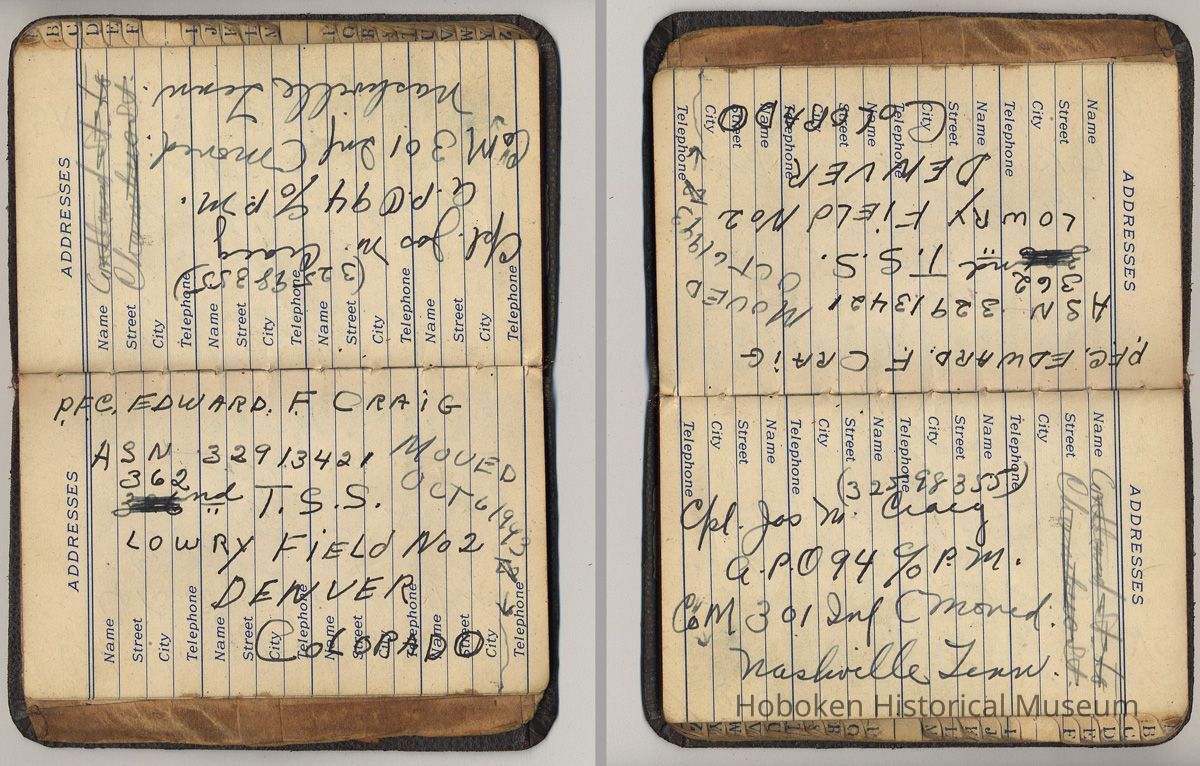 PFC. EDWARD. F CRAIG
ASN 32913421 MOVED
362 OCT 6 1943
nd T.S.S.
LOWRY FIELD No 2
DENVER
COLORADO
ADDRESSES
Name
Street
City
Telephone
Name
Street
City
Telephone
Name
Street
City
Telephone
Name
Street
City
Telephone
ADDRESSES
Name
Street
City
Telephone
Name
Street
City
Telephone
Name
Street
City
Telephone
Name
City
Telephone
(32598355)
Cpl. Jos M. Craig
A.P.O 94 c/o P.M.
Co M 301 Inf (moved.
Nashville Tenn.
PFC. EDWARD. F. CRAIG
ASN 32913421 MOVED
362 OCT 6 1943
nd T.S.S.
LOWRY FIELD No 2
DENVER
COLORADO
ADDRESSES
Name
Street
City
Telephone
Name
Street
City
Telephone
Name
Street
City
Telephone
Name
Street
City
Telephone
ADDRESSES
Name
Street
City
Telephone
Name
Street
City
Telephone
Name
Street
City
Telephone
Name
Street
City
Telephone
(32598355)
Cpl. Jos M. Craig
A.P.O 94 c/o P.M.
Co M 301 Inf (moved.
Nashville Tenn.
Hoboken Historical Museum